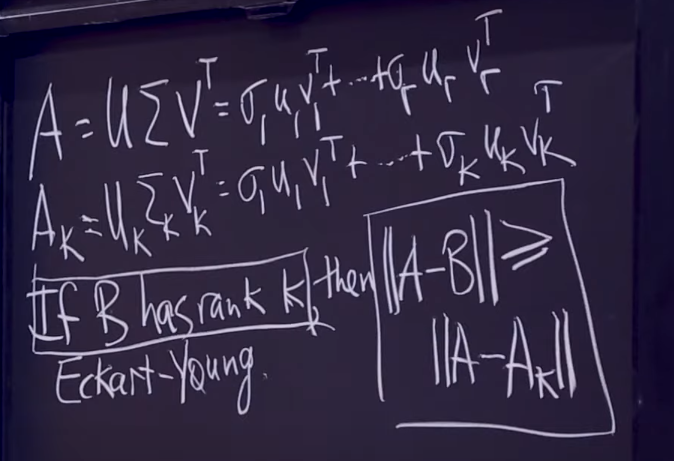 A = UΣVᵀ = σ₁u₁v₁ᵀ + ··· + σᵣuᵣvᵣᵀ
A_K = U_K Σ_K V_Kᵀ = σ₁u₁v₁ᵀ + ··· + σ_K u_K v_Kᵀ
If B has rank k, then ||A-B|| ≥
Eckart-Young. ||A-A_K||